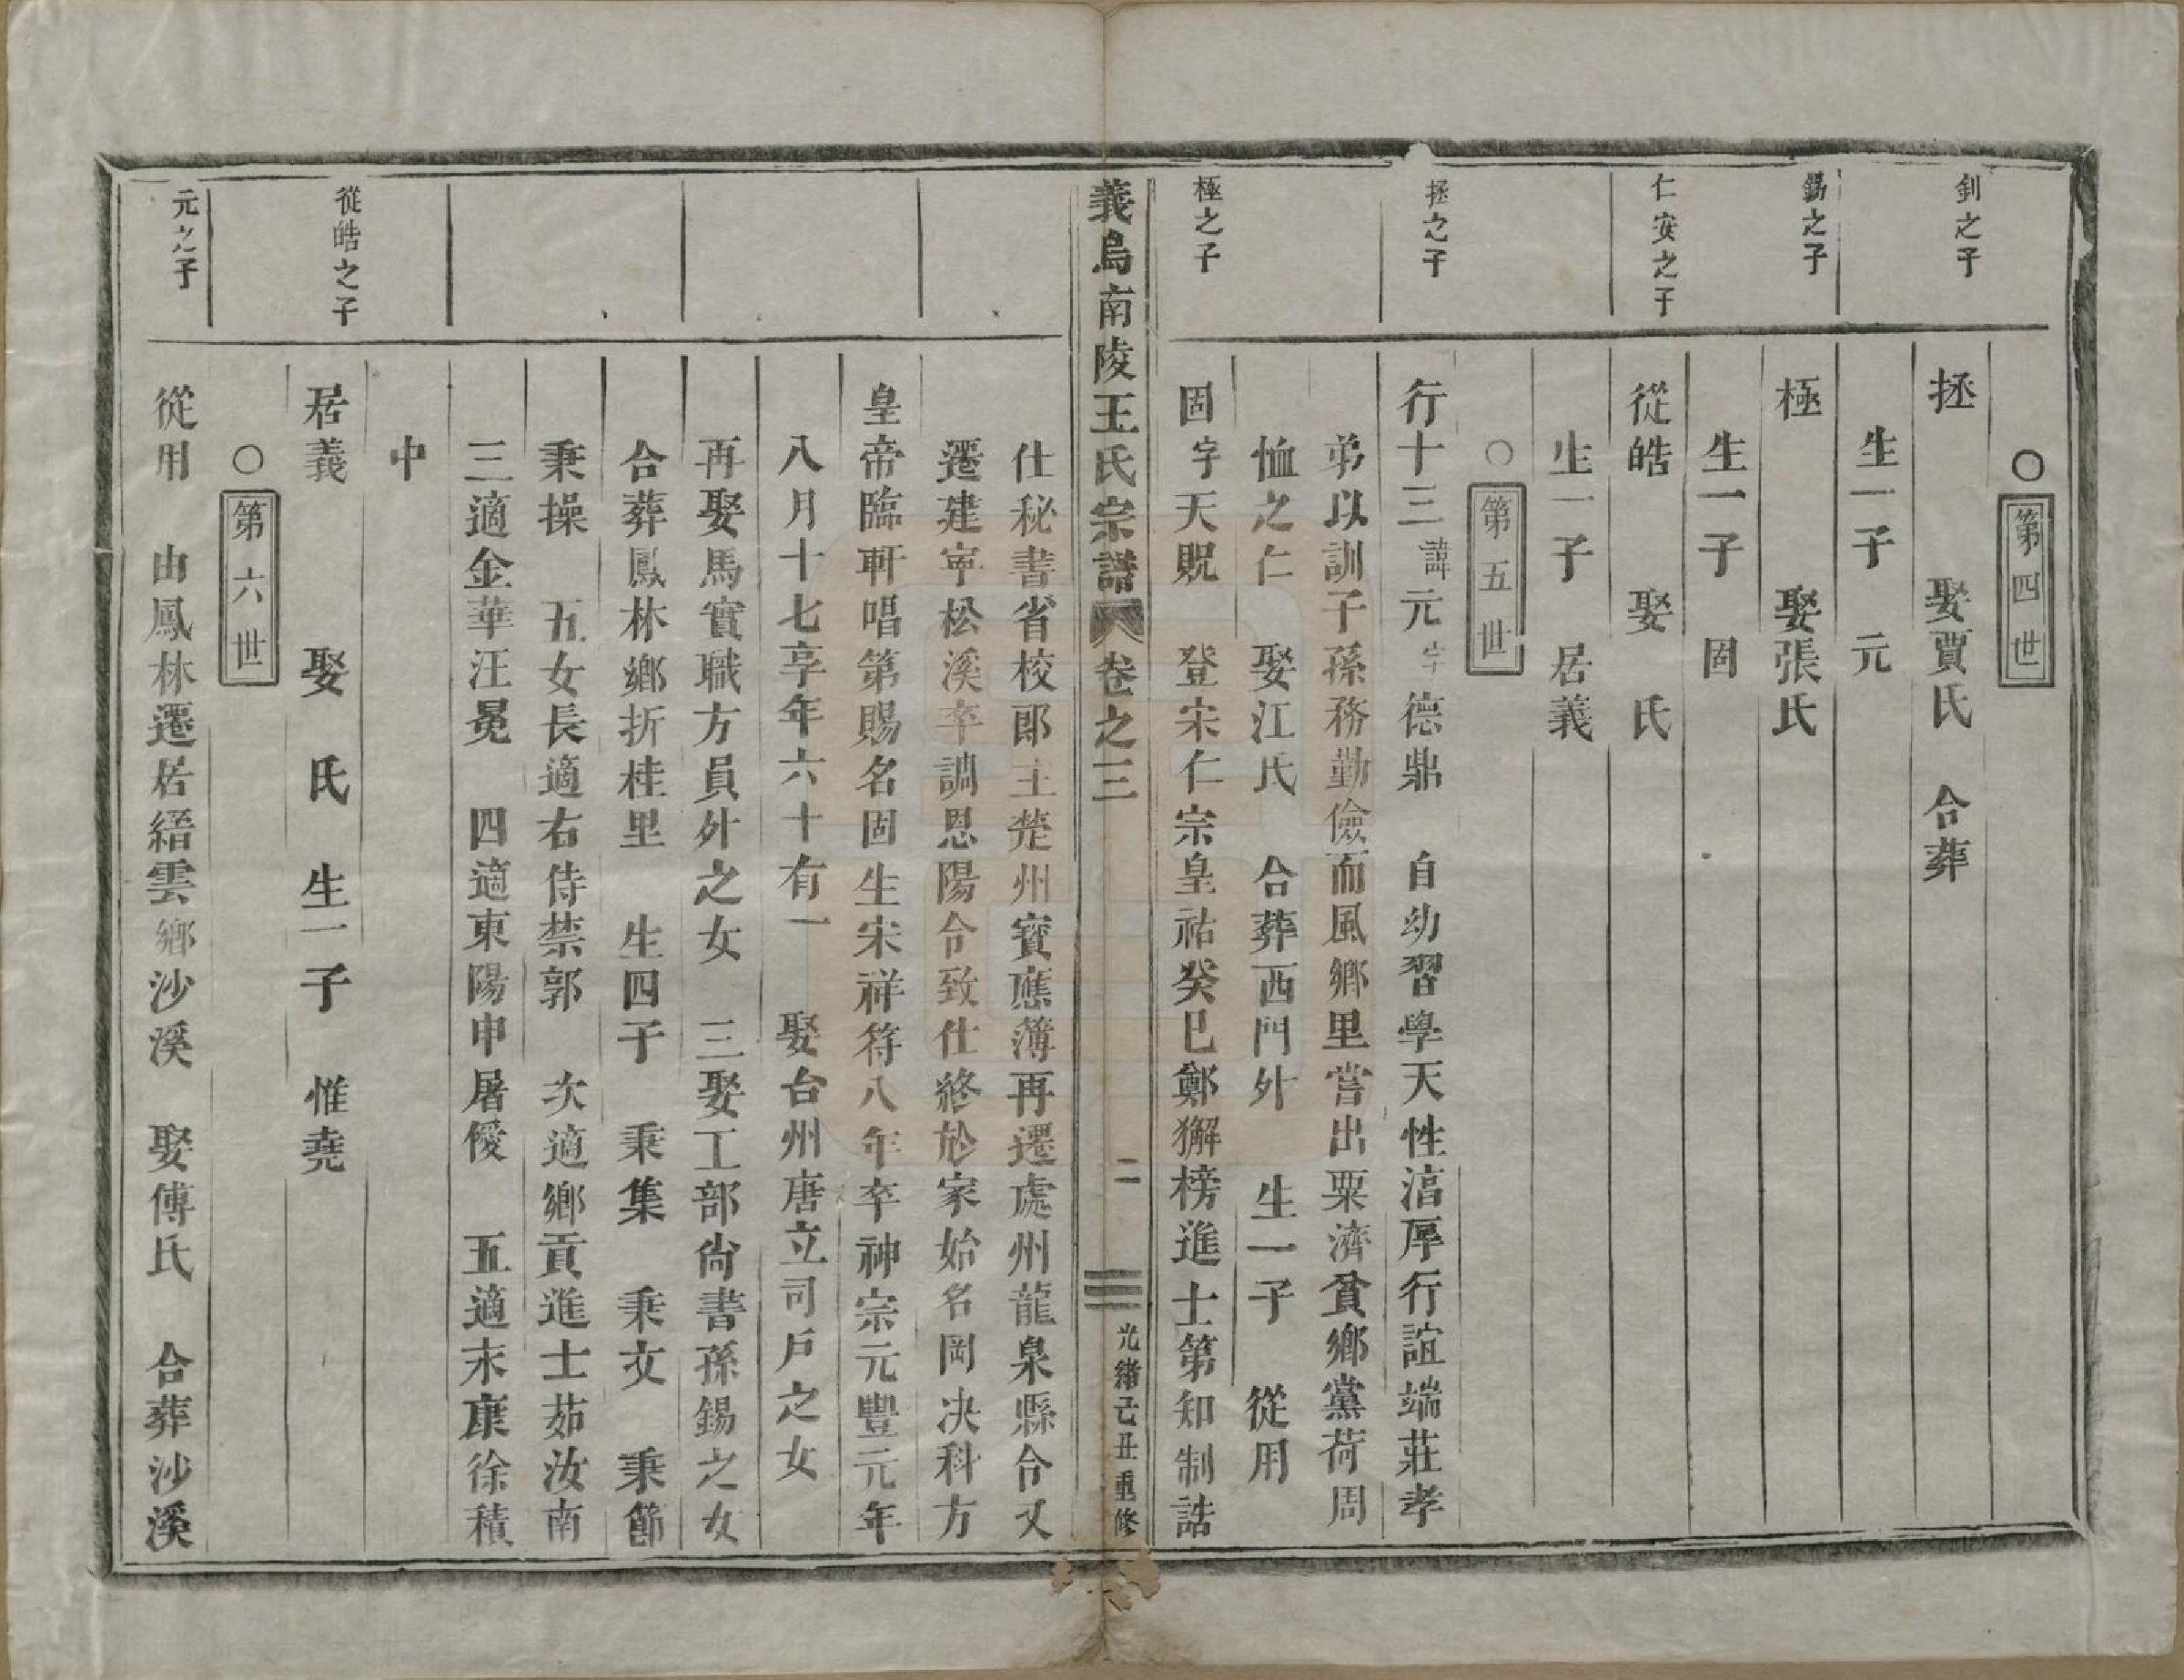 ○第四世
釗之子
拯 娶賈氏 合葬
生一子 元
錫之子
極 娶張氏
生一子 固
仁安之子
從皓 娶 氏
生一子 居義
○第五世
拯之子
行十三諱元字德鼎 自幼習學天性湻厚行誼端莊孝
弟以訓子孫務勤儉而風鄉里嘗出粟濟貧鄉黨荷周
恤之仁 娶江氏 合葬西門外 生一子 從用
極之子
固字天貺 登宋仁宗皇祐癸巳鄭獬榜進士第知制誥
義烏南陵王氏宗譜 卷之三 二 光緒己丑重修
仕秘書省校郎主楚州寶應簿再遷處州龍泉縣令又
遷建寧松溪卒調恩陽令致仕終於家始名岡决科方
皇帝臨軒唱第賜名固生宋祥符八年卒神宗元豐元年
八月十七享年六十有一 娶台州唐立司戶之女
再娶馬實職方員外之女 三娶工部尙書孫錫之女
合葬鳳林鄉折桂里 生四子 秉集 秉文 秉節
秉操 五女長適右侍禁郭 次適鄉貢進士茹汝南
三適金華汪冕 四適東陽申屠優 五適永康徐積
中
從皓之子
居義 娶 氏 生一子 惟堯
○第六世
元之子
從用 由鳳林遷居縉雲鄉沙溪 娶傅氏 合葬沙溪